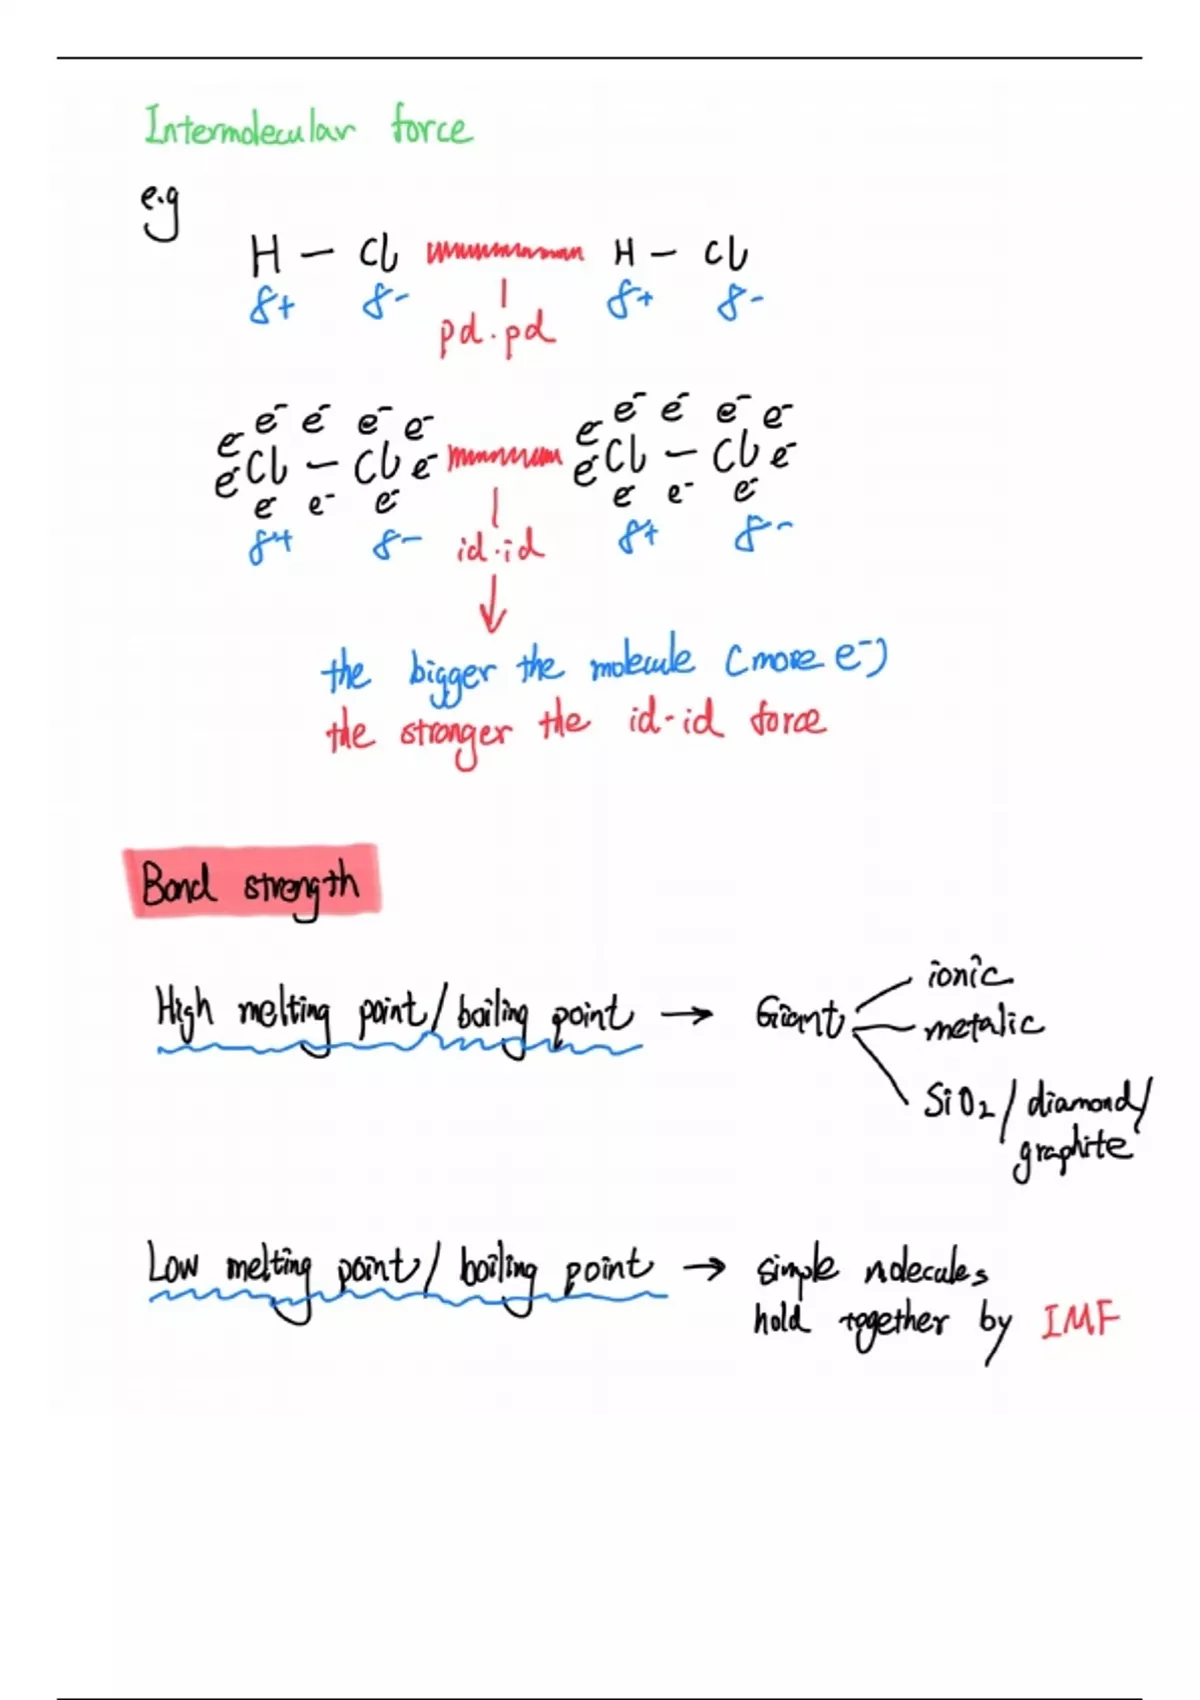 Intermolecular force
e.g
H – Cl H – Cl
δ+ δ- δ+ δ-
pd.pd
e- e- e- e- e- e- e- e-
e- e-
e- Cl – Cl e- e- Cl – Cl e-
e- e- e- e- e- e-
δ+ δ- id.id δ+ δ-
the bigger the molecule (more e-)
the stronger the id-id force
Bond strength
ionic
High melting point/boiling point → Giant metalic
SiO2/diamond/
graphite
Low melting point/boiling point → simple molecules
hold together by IMF